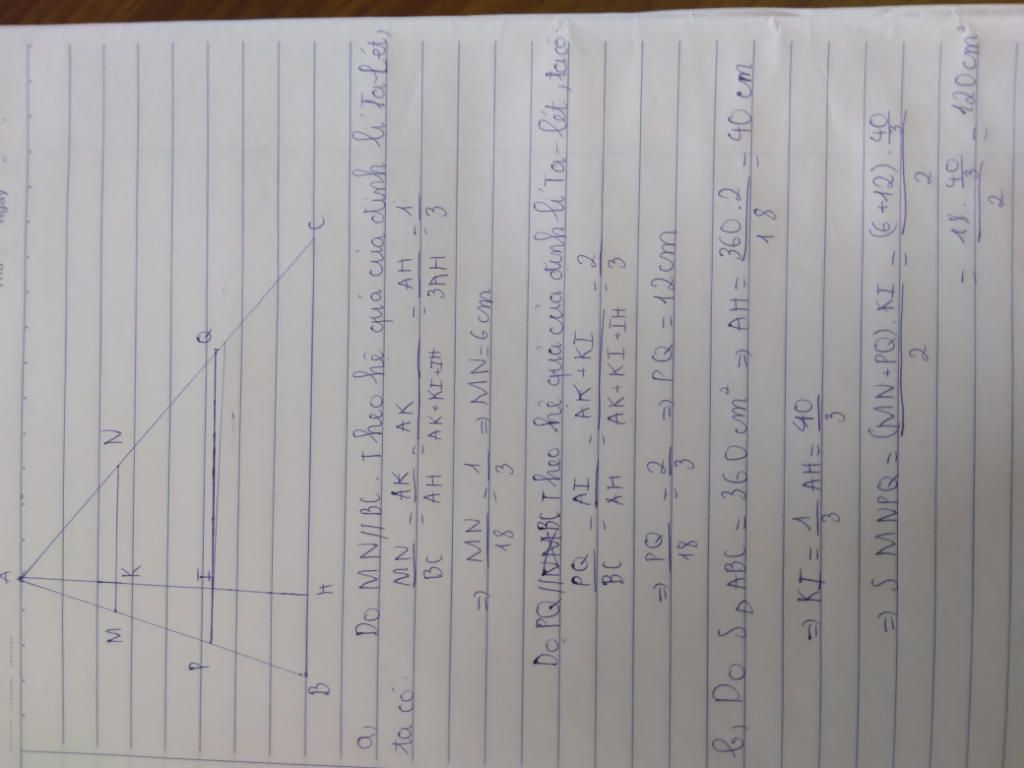 A
M
K
N
P
I
Q
B
H
C
a) Do MN//BC. Theo hệ quả của định lí Ta-lét,
ta có: MN/BC = AK/AH = AK/AK+KI+IH = AH/3AH = 1/3
=> MN/18 = 1/3 => MN = 6cm
Do PQ//BC Theo hệ quả của định lí Ta-lét, ta có:
PQ/BC = AI/AH = AK+KI/AK+KI+IH = 2/3
=> PQ/18 = 2/3 => PQ = 12cm
b, Do SΔABC = 360 cm² => AH = 360.2/18 = 40 cm
=> KI = 1/3 AH = 40/3
=> S MNPQ = (MN+PQ).KI/2 = (6+12).40/3/2
= 18.40/3/2 = 120cm²